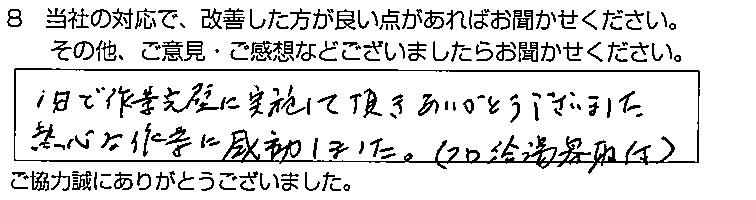 8 当社の対応で、改善した方が良い点があればお聞かせください。
その他、ご意見・ご感想などございましたらお聞かせください。
1日で作業完璧に実施して頂きありがとうございました
熱心な作業に感動しました。(フロ給湯器取付)
ご協力誠にありがとうございました。